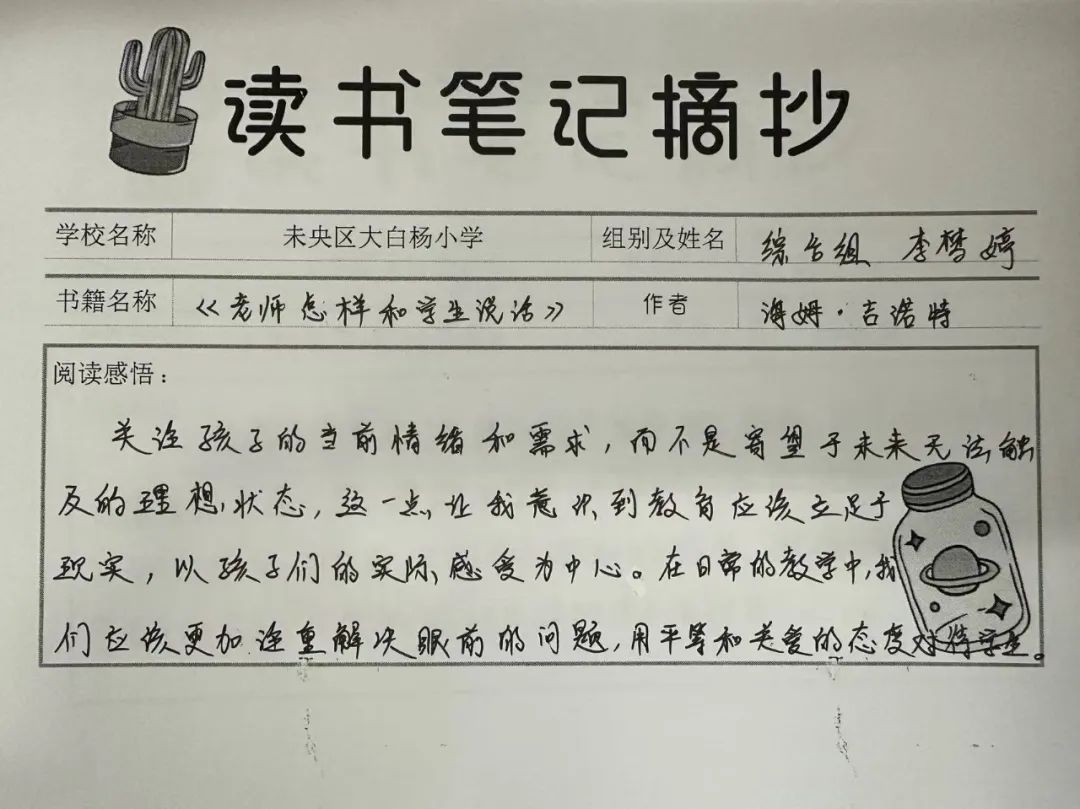 读书笔记摘抄
学校名称 未央区大白杨小学 组别及姓名 综合组 李梦婷
书籍名称 《老师怎样和学生说话》 作者 海姆·吉诺特
阅读感悟：
关注孩子的当前情绪和需求，而不是寄望于未来无法触
及的理想状态，这一点让我意识到教育应该立足于
现实，以孩子们的实际感受为中心。在日常的教学中，我
们应该更加注重解决眼前的问题，用平等和关爱的态度对待学生。